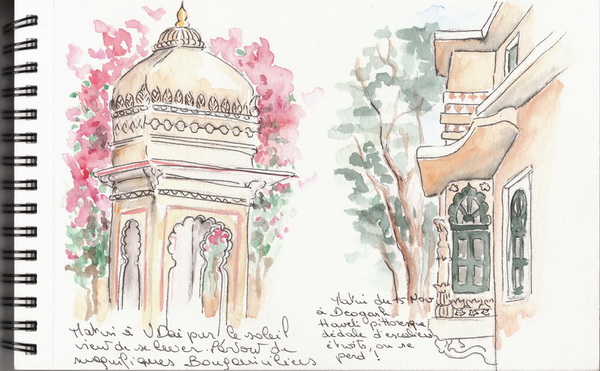 Matin à UDaipur le soleil
vient de se lever. Partout de
magnifiques Bougainvilliers
Matin du 15 Nov
à Deogarh
Haveli pittoresque,
dédale d'escaliers
étroits, on se
perd !